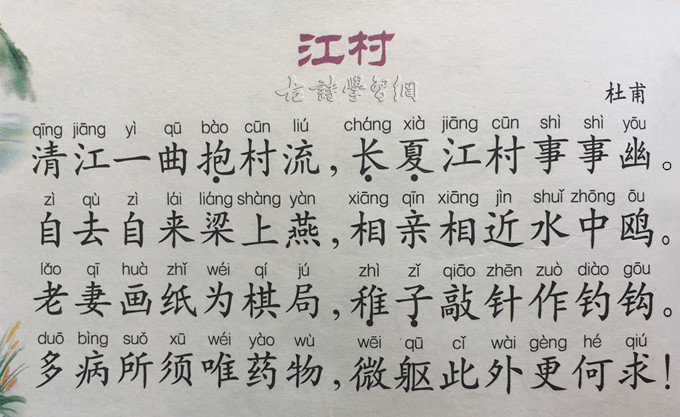 江村
古詩學習網
杜甫
qīng jiāng yì qū bào cūn liú cháng xià jiāng cūn shì shì yōu
清江一曲抱村流,长夏江村事事幽。
zì qù zì lái liáng shàng yàn xiāng qīn xiāng jìn shuǐ zhōng ōu
自去自来梁上燕,相亲相近水中鸥。
lǎo qī huà zhǐ wéi qí jú zhì zǐ qiāo zhēn zuò diào gōu
老妻画纸为棋局,稚子敲针作钓钩。
duō bìng suǒ xū wéi yào wù wēi qū cǐ wài gèng hé qiú
多病所须唯药物,微躯此外更何求!